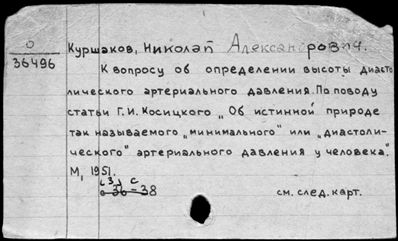 О
36496
Куршаков, Николай Александрович.
К вопросу об определении высоты диасто
лического артериального давления. По поводу
статьи Г. И. Косицкого „Об истинной природе
так называемого „минимального" или „диастоли-
ческого" артериального давления у человека".
М, 1951.
с 36-38
см. след. карт.